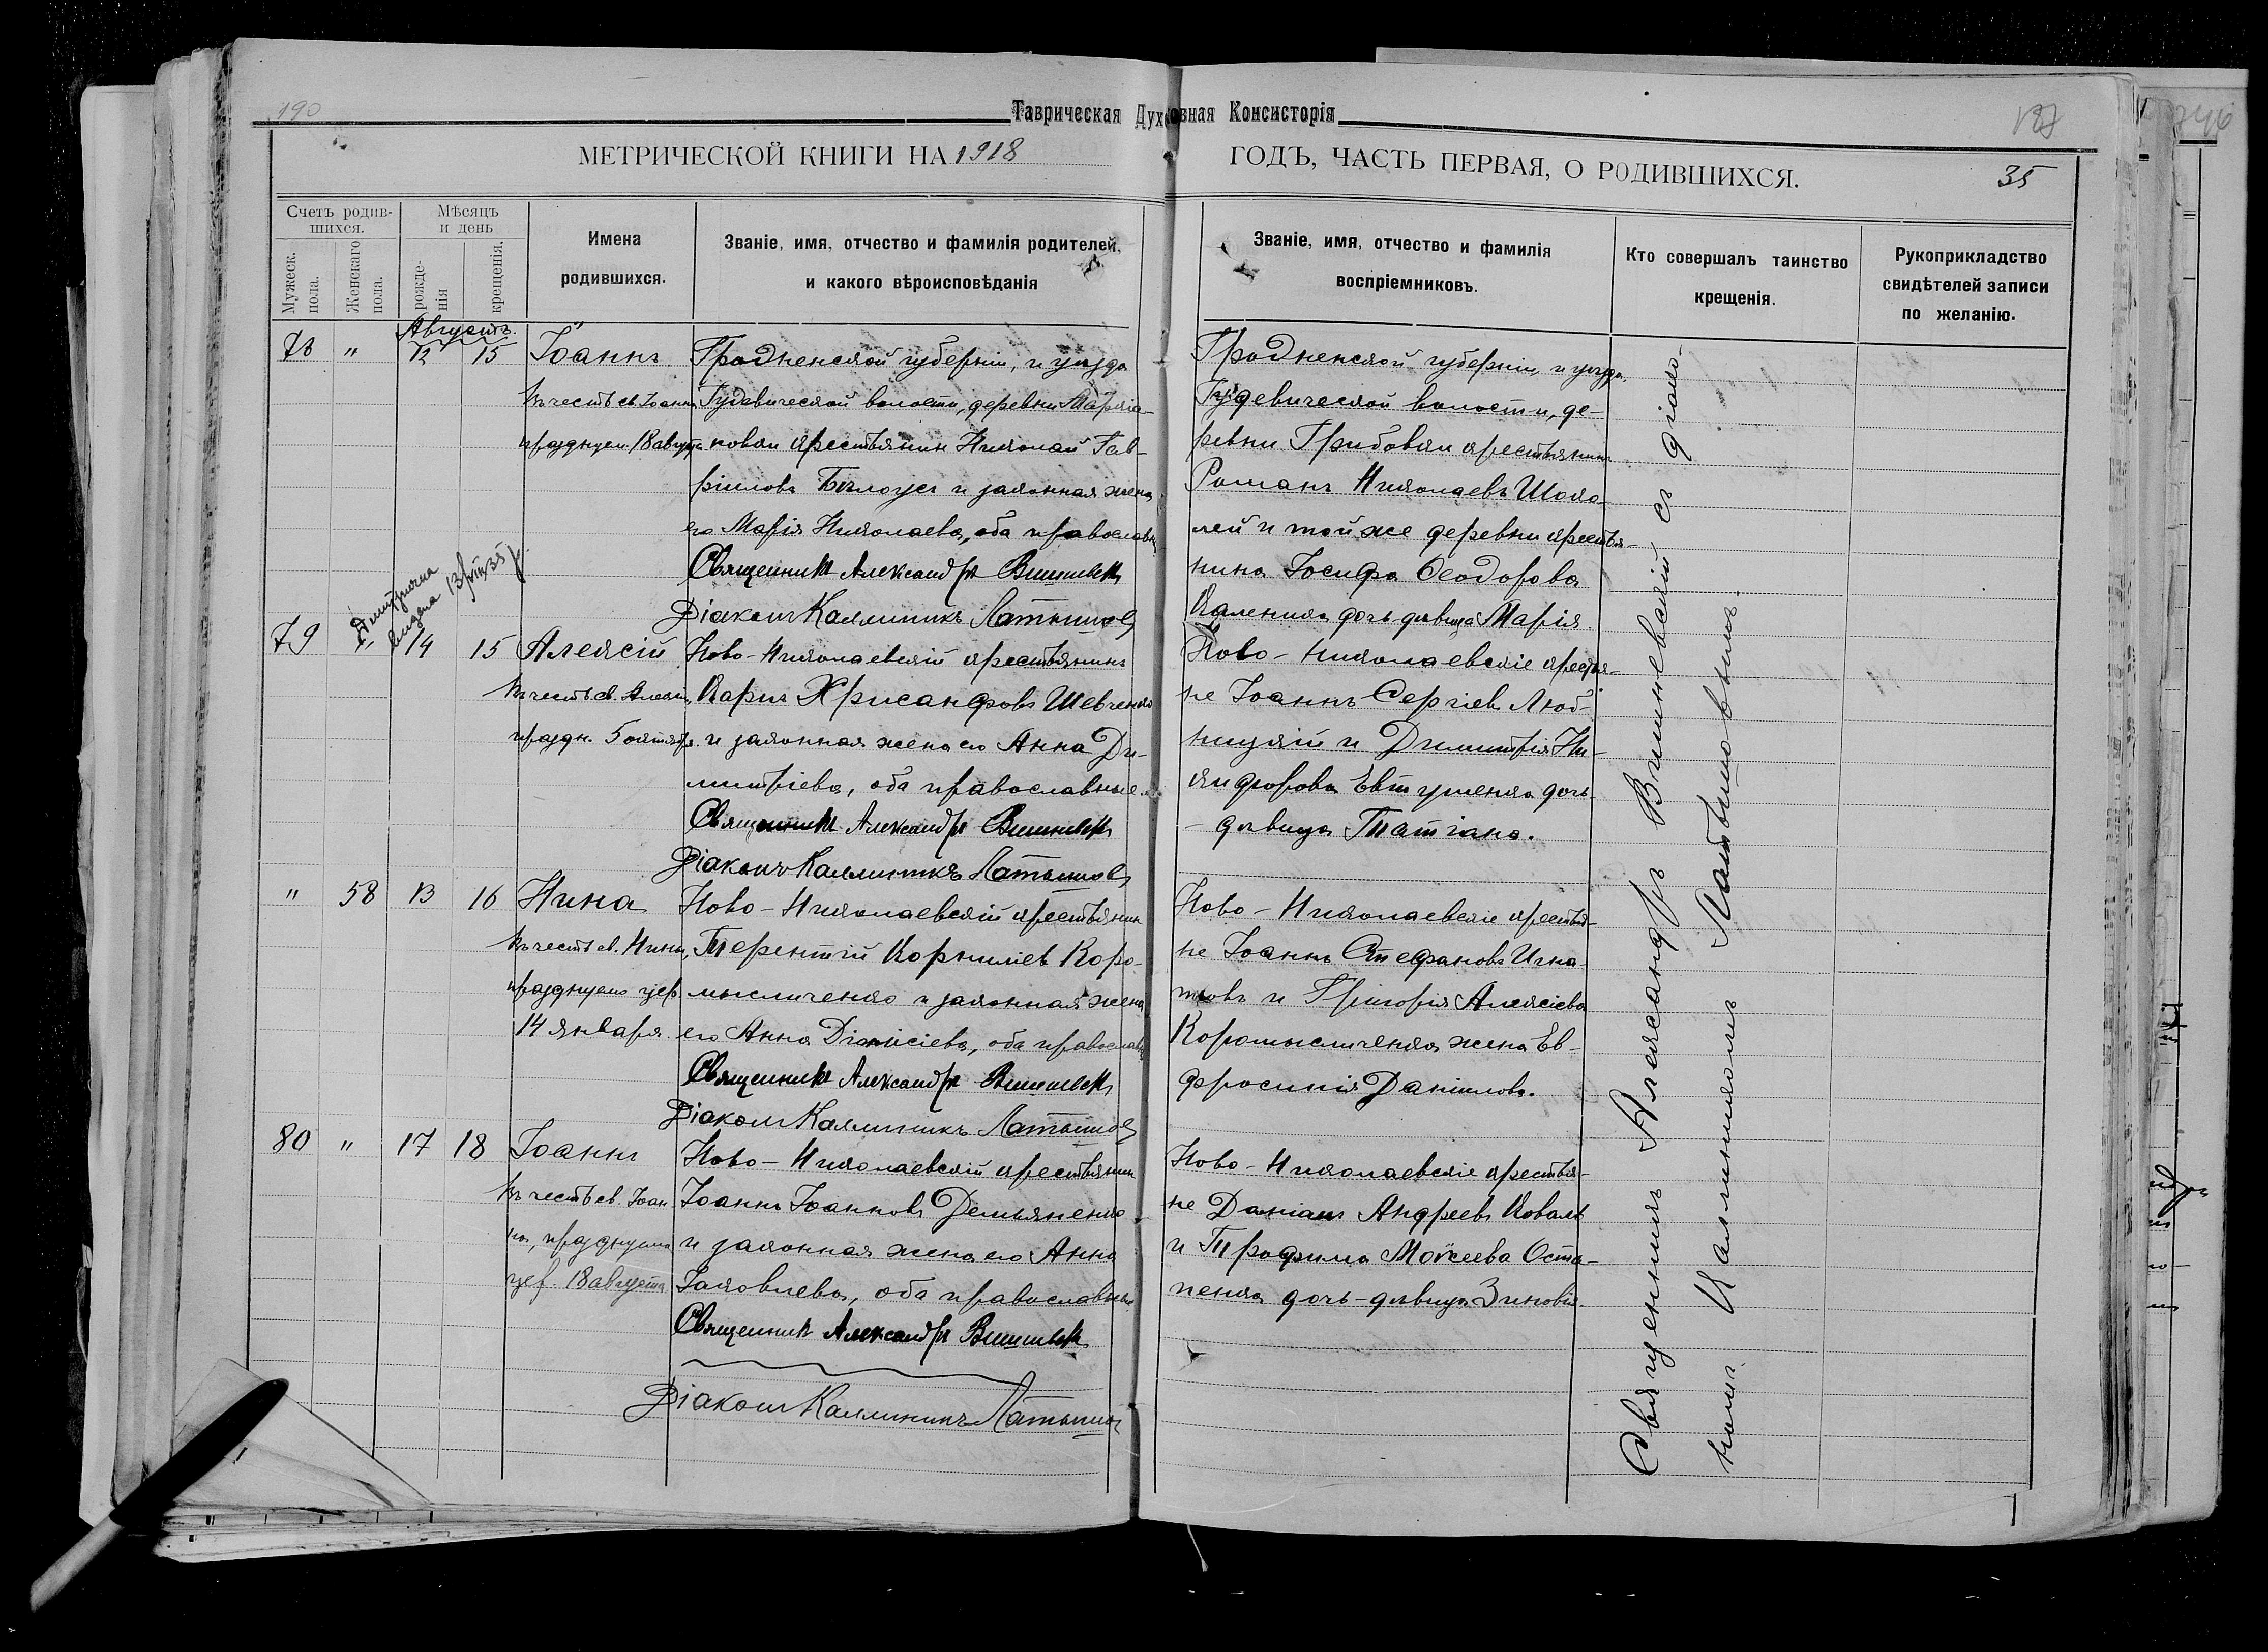 190
Таврическая Духовная Консисторія
187
МЕТРИЧЕСКОЙ КНИГИ НА 1918
ГОДЪ, ЧАСТЬ ПЕРВАЯ, О РОДИВШИХСЯ.
35
Счетъ родив-
шихся.
Мужеск. пола.
Женскаго пола.
Мѣсяцъ
и день
рожде-
нія
крещенія.
Имена
родившихся.
Званіе, имя, отчество и фамилія родителей,
и какого вѣроисповѣданія
Званіе, имя, отчество и фамилія
воспріемниковъ.
Кто совершалъ таинство
крещенія.
Рукоприкладство
свидѣтелей записи
по желанію.
Августъ.
78 " 12 15 Іоаннъ
въ честь св. Іоанна
празднуем. 18 августа
Гродненской губерніи, и уѣзда
Гудевической волости, деревни
новки крестьянин Николай Гав-
ріиловъ Бѣлоусъ и законная жена
его Марія Николаева, оба православн
Священникъ Александръ Вишневскій
Діаконъ Каллиникъ Латышовъ
Гродненской губерніи и уѣзда,
Гудевической волости, де-
ревни Грибовки крестьянинъ
Романъ Николаевъ Шока-
лей и той же деревни крестья-
нина Іосифа Ѳеодорова
дочь дѣвица Марія.
выдана 13/VIII 35 г.
79 " 14 15 Алексій
въ честь св. Алексія,
праздн. 5 октября
Ново-Николаевскій крестьянинъ
Карпъ Хрисанфовъ Шевченко
и законная жена его Анна Ди-
митріева, оба православные.
Священникъ Александръ Вишневскій
Діаконъ Каллиникъ Латышовъ
Ново-Николаевскіе крестья-
не Іоаннъ Сергіевъ Люб-
ницкій и Димитрія Ни-
кифорова Евтушенка дочь
- дѣвица Татіана.
" 58 13 16 Нина
въ честь св. Нины,
празднуемо цер.
14 января.
Ново-Николаевскій крестьянин
Терентій Корниліев Коро-
мысличенко и законная жена
его Анна Діонисіева, оба православн
Священникъ Александръ Вишневскій
Діаконъ Каллиникъ Латышовъ
Ново-Николаевскіе крестья-
не Іоаннъ Стефановъ Игна-
товъ и Григорія Алексіева
Коромысличенка жена Ев-
фросинія Даніилова.
80 " 17 18 Іоаннъ
въ честь св. Іоан
на, празднуемо
цер. 18 августа
Ново-Николаевскій крестьянин
Іоаннъ Іоанновъ Демьяненко
и законная жена его Анна
Іаковлева, оба православные
Священникъ Александръ Вишневскій
Діаконъ Каллиникъ Латышовъ
Ново-Николаевскіе крестья-
не Даніилъ Андреевъ Коваль
и Трофима Моѵсеева Оста-
пенка дочь-дѣвица Зиновія.
Священникъ Александръ Вишневскій съ діако-
номъ Каллиникомъ Латышовымъ.